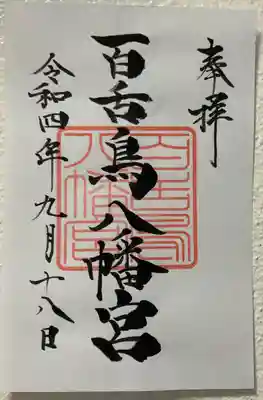 奉拝
百舌鳥八幡宮
令和四年九月十八日
百舌鳥八幡宮